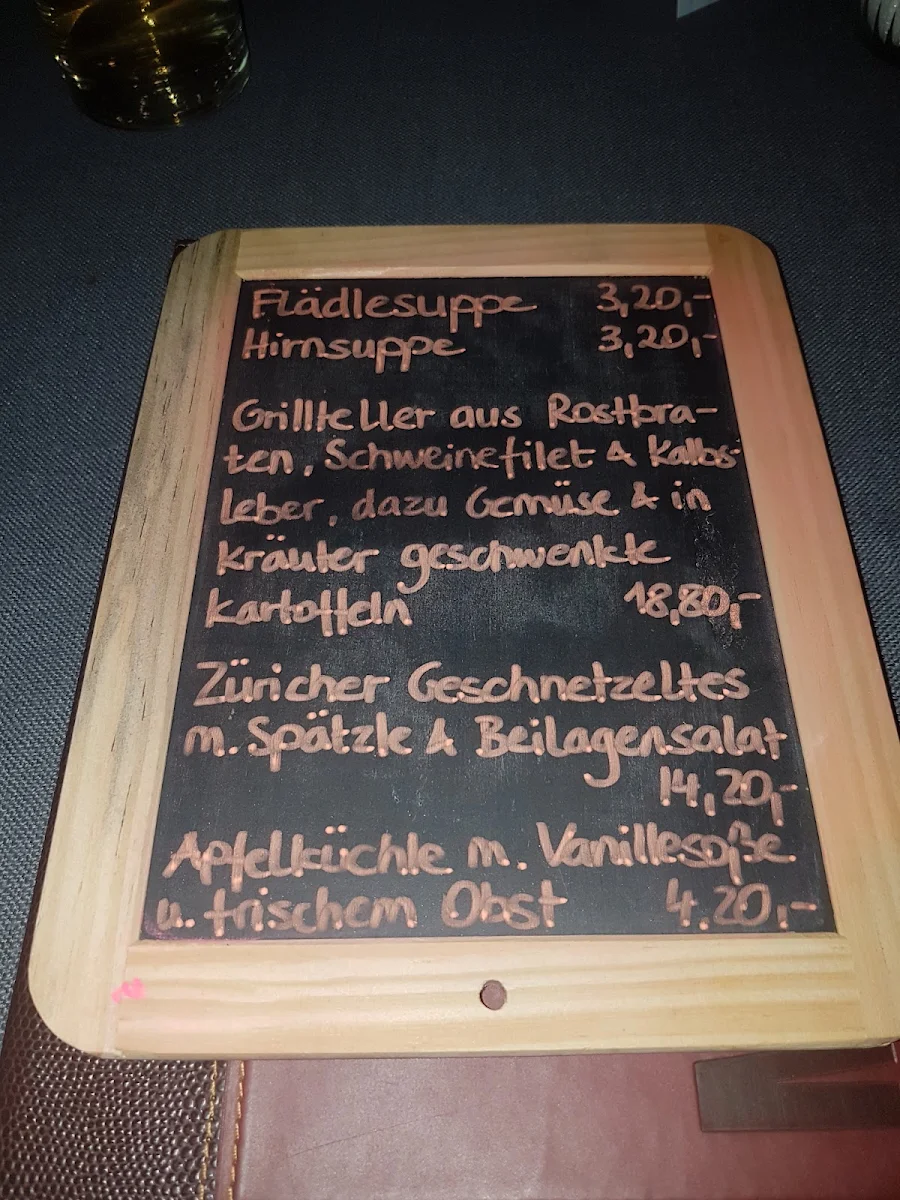 Flädlesuppe 3,20,-
Hirnsuppe 3,20,-
Grillteller aus Rostbra-
ten, Schweinefilet & Kalbs-
leber, dazu Gemüse & in
Kräuter geschwenkte
Kartoffeln 18,80,-
Züricher Geschnetzeltes
m. Spätzle & Beilagensalat
14,20,-
Apfelküchle m. Vanillesoße
u. frischem Obst 4.20,-